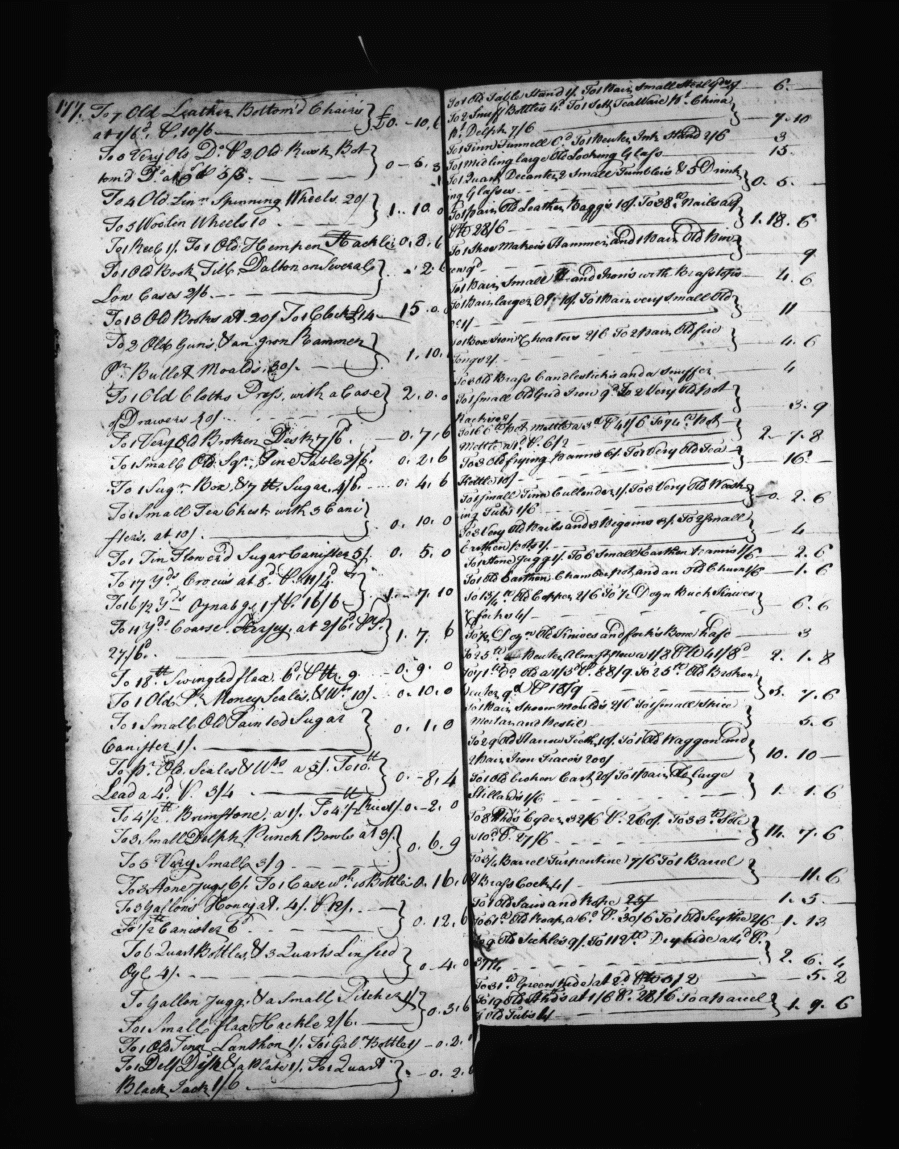 177. To 7 Old Leather Bottom'd Chairs } £0.-10.6
at 1/6d. P. 10/6
To 3 Very Old Do. & 2 Old Rush Bot- } 0-5.3
tom'd Do. at P 5/3
To 4 Old Linn Spinning Wheels 20/ } 1..10.0
To 5 Woolen Wheels 10
To 1 Reel 1/. To 1 Old Hempen Hackle 0.2.6
To 1 Old Book Titl. Dalton on Several } .2.6
Law Cases 2/6
To 13 Old Books at 20/ To 1 Clock £14 15.0.0
To 2 Old Guns, & an Iron Rammer } 1.10.
Pr. Bullet Moulds 30/.
To 1 Old Cloths Press, with a Case } 2.0.0
of Drawers 40/.
To 1 Very Old Broken Desk 7/6. -0.7.6
To 1 Small Old Sqr. Pine Table 2/6. 0.2.6
To 1 Sugr. Box, & 7 tt. Sugar 4/6. 0.4.6
To 1 Small Tea Chest with 3 Cani- } 0.10.0
sters. at 10/
To 1 Tin Flower'd Sugar Canister 5/. 0.5.0
To 17 Yds. Crocus at 8d. P. 11/4 } 1.-7.10
To 16 1/2 Yds 1/ P. 16/6
To 11 Yds. Coarse Kersey at 2/6d. P } 1.7.6
27/6d.
To 18 tt. Swingled flax 6d. P tt. 9 -0.9.0
To 1 Old Pr. Money Scales, & Wts. 10/. -0.10.0
To 1 Small Old Painted Sugar } 0.1.0
Canister 1/.
To 1 pr. Old Scales & Wts a 5/. To 10 tt. } 0.-8.4
Lead a 4d. P. 3/4
To 4 1/2 tt. Brimstone, a 1/. -0.-2.0
To 3 Small Delph Punch Bowls at 3/. } 0.6.9
To 5 Very Small 3/9
To 2 Stone Jugs 6/. To 1 Case wth. 10 Bottles 0.16.
To 3 Gallons Honey at 4/. P 12/. } 0.12.6
To 1/2 tt Canester 6d.
To 6 Quart Bottles, & 3 Quarts Linseed } 0.4.0
Oyl 4/.
To Gallon Jugg. & a Small Pitcher 1/ } 0.3.6
To 1 Small flax Hackle 2/6.
To 1 Old Tinn Lanthon 1/. To 1 Gal. Bottle 1/ -0.2.
To 1 Delf Dish & a Plate 1/. To 1 Quart } -0.2.6
Black Jack 1/6
To 1 Old Table Stand 1/. To 1 Pair Small 6.
To 2 Snuff Bottles 4d To 1 Sett Tea Ware Pt. China
Pt. Delph 7/6 7.10
To 1 Tinn Tunnell 6d. To 1 Pewter Ink Stand 2/6 3
To 1 Midling large Old Looking Glass 15.
To 1 Quart Decanter, 2 Small Tumblers & 5 Drink- } 0.5.
ing Glasses
To 1 Pair Old Leather Baggs 10/. To 38 tt Nails a 9
P tt 28/6 } 1.18.6
To 1 Shoe Makers Hammer, and 1 Pair Old Pin-
cers 9d. 9
To 1 Pair Small Hand Irons with Brass tops 4.6
To 1 Pair larger Do. 10/. To 1 Pair very Small Old
Do 1/ 11
To 1 Box Iron & Heaters 2/6 To 2 Pair Old fire
Tongs 2/. 4.6
To 3 Old Brass Candlesticks and a Snuffer 4
To 1 Small Old Grid Iron 9d. To 2 Very Old Pot }
Racks 3/. 3.9
To 166 tt Pot Mettle a 3d P 41/6 To 74 tt Pot }
Mettle P. 6/2 2.-7.8
To 3 Old frying Panns 6/. To 1 Very Old Tea }
Kettle 10/ 16.
To 1 Small Tinn Cullender 1/. To 3 Very Old Wash- }
ing Tubs 1/6 0.2.6
To 3 Very Old Pails and 3 Piggins 2/. To 2 Small }
Earthen Pots 2/. 4
To 1 Stone Jugg 1/. To 6 Small Earthen Panns 1/6 2.6
To 1 Old Earthen Chamber pot, and an Old Churn 1/6 1.6
To 13 1/2 tt Old Copper 2/6 To 1/2 Dozn Buck Knives }
& forks 4/. 6.6
To 1/2 Dozn Old Knives and forks Bone haft 3
To 25 tt Pewter almost new a 1/8 P tt 41/8d 2.1.8
To 71 tt Do. Old a 1/3 P. 88/9. To 25 tt Old Broken }
Pewter 9d P 18/9 5.7.6
To 1 Pair Spoon Moulds 2/6 To 1 Small Spice }
Mortar and Pestil 5.6
To 29 Old Harrow Teeth 10/. To 1 Old Waggon and }
2 Pair Iron Traces 200/ 10.10
To 1 Old broken Cart 20/ To 1 Pair large }
Stillards 1/6 1.1.6
To 8 Hhds. Cyder a 32/6 P. 260/. To 33 tt }
a 10d. P. 27/6 14.7.6
To 3/4 Barrel Turpentine 7/6 To 1 Barrel }
& Brass Cock 4/ 11.6
To 1 Old Saw and Rope 25/ 1.5.
To 61 tt Old Ropes, a 6d P. 30/6 To 1 Old Scythe 2/6 1.13
To 9 Old Sickles 9/. To 112 tt Dry hide at 4d P. }
37/4 2.6.4
To 31 tt Green Hide at 2d. P tt 5/2 5.2
To 19 Old Hhds at 1/6 P. 28/6 To a parcel }
of Old Tubs 1/ 1.9.6